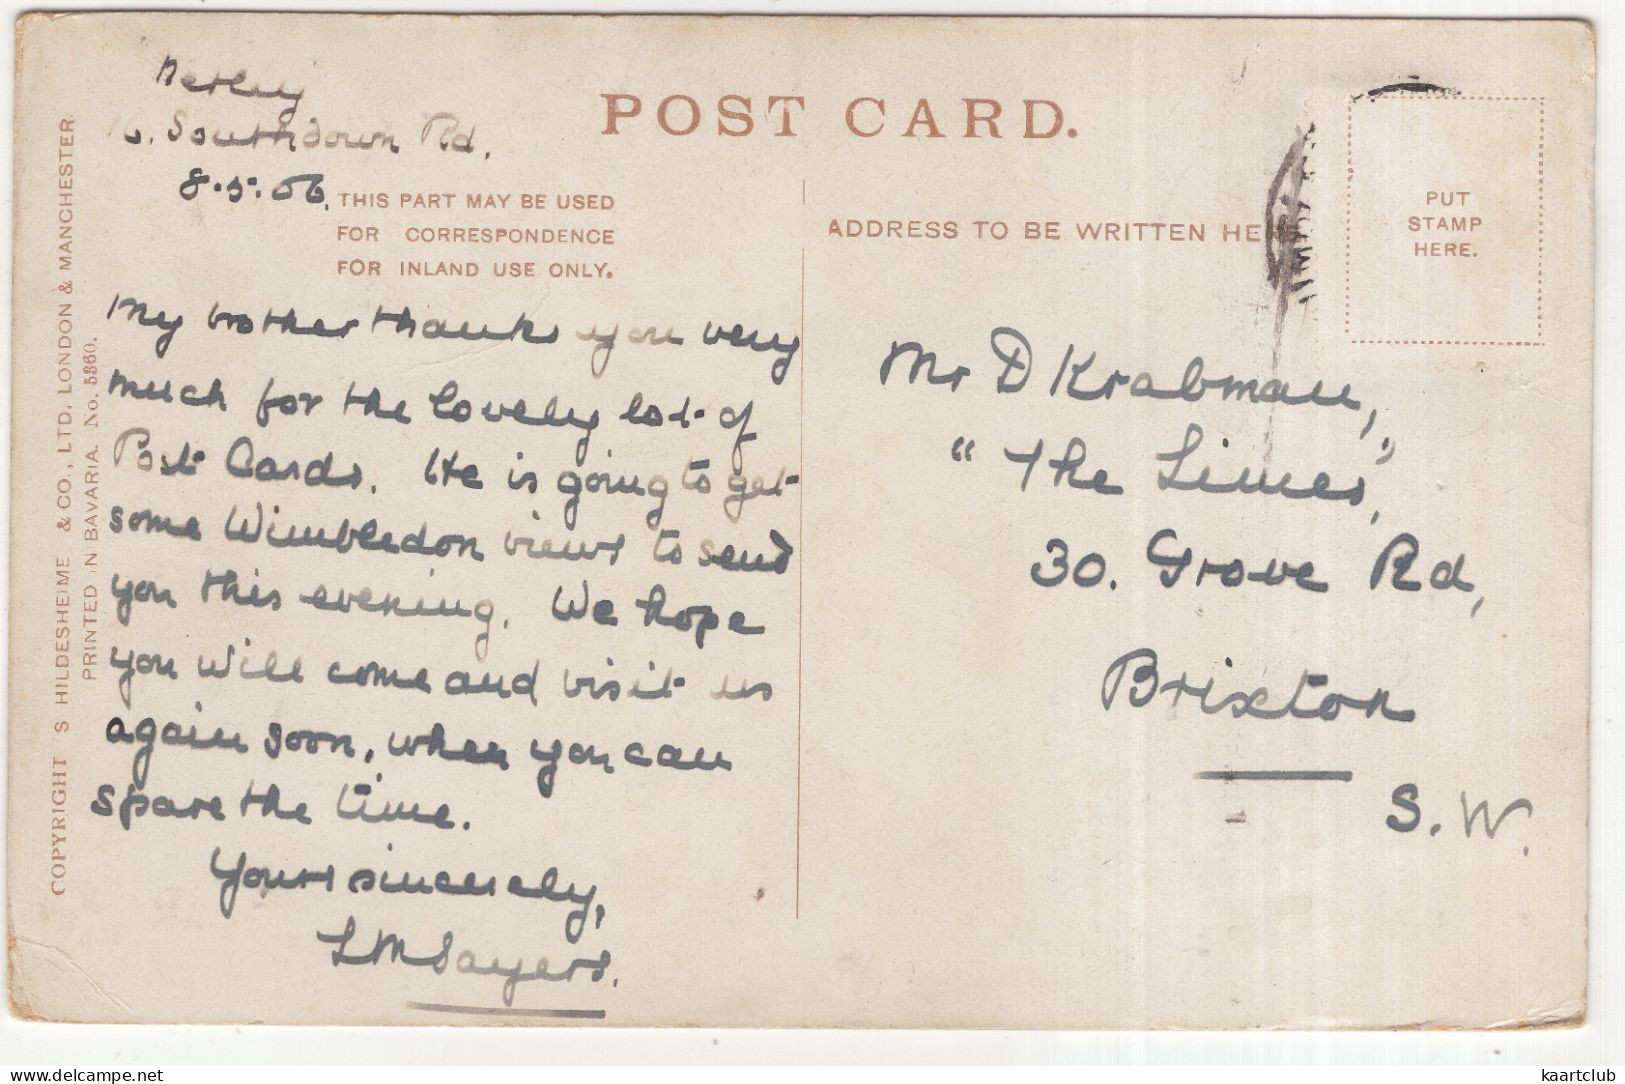 POST CARD.
Southdown Rd.
8.5.06.
THIS PART MAY BE USED
FOR CORRESPONDENCE
FOR INLAND USE ONLY.
My brother thanks you very
much for the lovely lot of
Post Cards. He is going to get
some Wimbledon views to send
you this evening. We hope
you will come and visit us
again soon, when you can
spare the time.
Yours sincerely,
L M Sayers.
ADDRESS TO BE WRITTEN HERE
PUT
STAMP
HERE.
Mr D Krabman,
"The Limes",
30. Grove Rd,
Brixton
S. W.
COPYRIGHT S HILDESHEIME & CO., LTD. LONDON & MANCHESTER
PRINTED IN BAVARIA. No. 5360.
www.delcampe.net
kaartclub